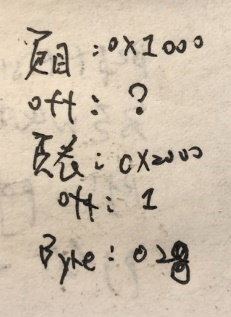 页目:0x1000
off:?
页表:0x2000
off:1
Byte:028